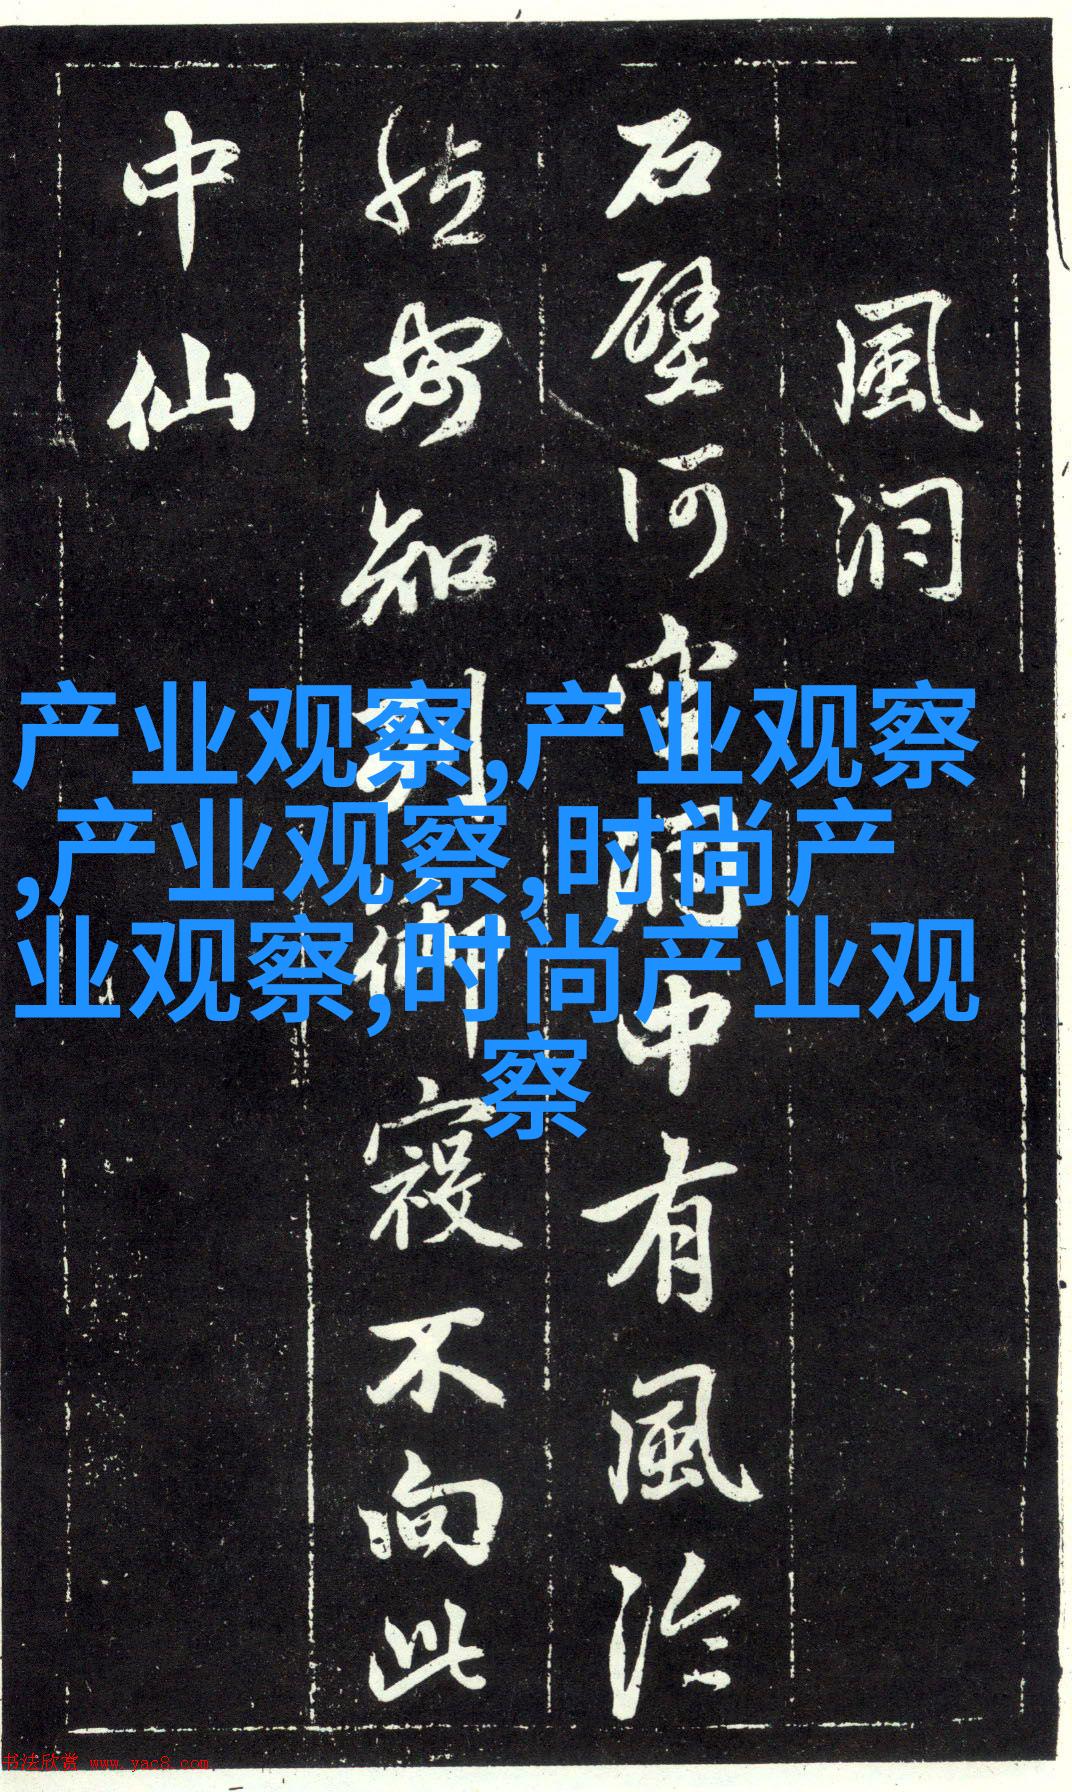 風洞
石壁何空洞中有風泠
然安知列御寇不向此
中仙
产业观察,产业观察
,产业观察,时尚产
业观察,时尚产业观
察
书法欣赏 www.yac8.com